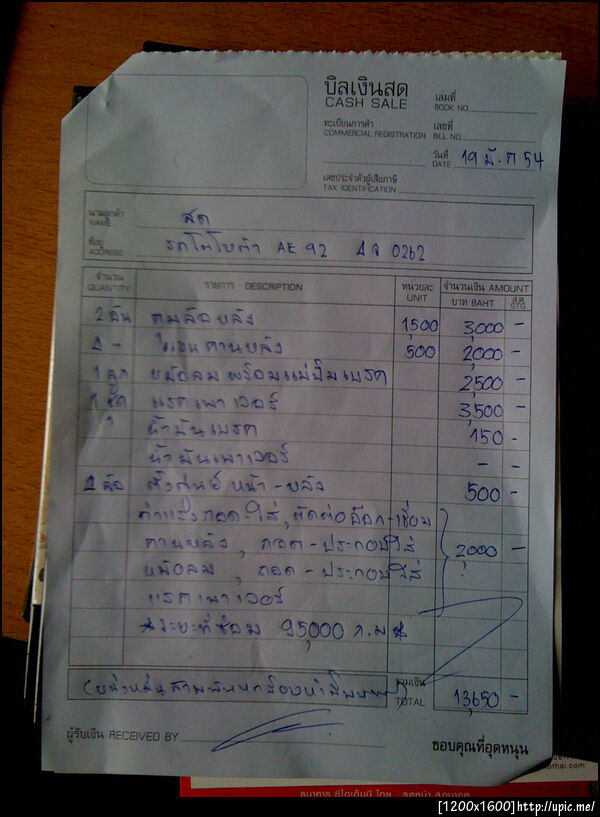 บิลเงินสด
CASH SALE
เล่มที่
BOOK NO.
ทะเบียนการค้า
COMMERCIAL REGISTRATION
เลขที่
BILL NO.
วันที่
DATE 19 มี.ค 54
เลขประจำตัวผู้เสียภาษี
TAX IDENTIFICATION
นามลูกค้า
NAME สด
ที่อยู่
ADDRESS รถโตโยต้า AE 92 0262
จำนวน QUANTITY รายการ DESCRIPTION หน่วยละ UNIT จำนวนเงิน AMOUNT บาท BAHT ส.ต. STG.
2 อัน ดุมล้อหลัง 1,500 3,000 -
500 2,000 -
1 ลูก หม้อลมพร้อมแม่ปั๊มเบรค 2,500 -
1 ชุด แรคเพาเวอร์ 3,500 -
น้ำมันเบรค 150 -
น้ำมันเพาเวอร์ - -
ล้อ ตั้งศูนย์ หน้า - หลัง 500 -
ค่าแรงถอด-ใส่, ตัดต่อล๊อก-เชื่อม
คานหลัง, ถอด-ประกอบใส่ 2,000 -
หม้อลม, ถอด-ประกอบใส่
แรคเพาเวอร์
ระยะที่ซ่อม 95,000 ก.ม
(หนึ่งหมื่นสามพันหกร้อยห้าสิบบาท) รวมเงิน TOTAL 13,650 -
ผู้รับเงิน RECEIVED BY
ขอบคุณที่อุดหนุน
ธนาคาร ซีไอเอ็มบี ไทย
[1200x1600]http://upic.me/